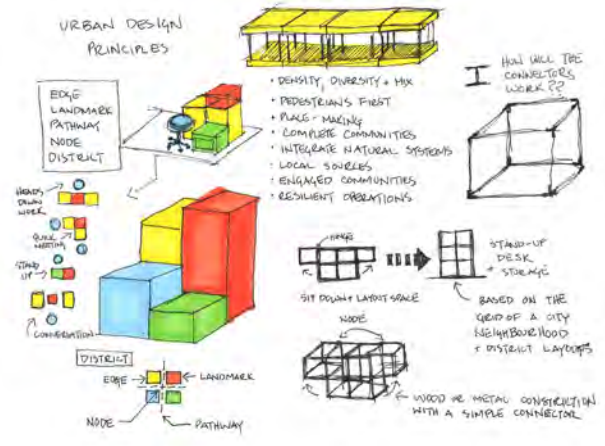 URBAN DESIGN
PRINCIPLES
EDGE
LANDMARK
PATHWAY
NODE
DISTRICT
• DENSITY, DIVERSITY + MIX
• PEDESTRIANS FIRST
• PLACE-MAKING
• COMPLETE COMMUNITIES
• INTEGRATE NATURAL SYSTEMS
• LOCAL SOURCES
• ENGAGED COMMUNITIES
• RESILIENT OPERATIONS
HOW WILL THE
CONNECTORS
WORK??
HEADS
DOWN
WORK
QUICK
MEETING
STAND
UP
CONVERSATION
HINGE
SIT DOWN + LAYOUT SPACE
STAND-UP
DESK
+ STORAGE
BASED ON THE
GRID OF A CITY
NEIGHBOURHOOD
+ DISTRICT LAYOUTS
NODE
WOOD OR METAL CONSTRUCTION
WITH A SIMPLE CONNECTOR
DISTRICT
EDGE
LANDMARK
NODE
PATHWAY